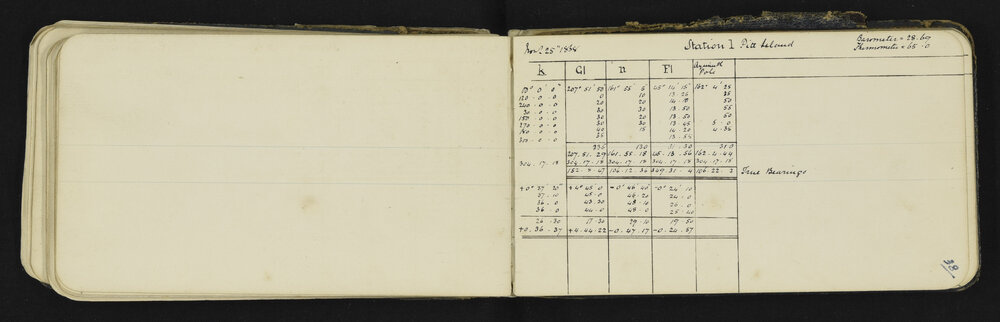 Station 1 Pitt Island
Barometer = 28.60
Thermometer = 65.0
25th 1868
K G1 n F1 Azimuth Pole
0 0 0 207 51 50 161 55 5 45 14 15 162 4 25
120 . 0 . 0 0 10 13 25 25
240 . 0 . 0 20 20 50
30 . 0 . 0 30 30 13 50 55
150 . 0 . 0 30 20 13 50 50
270 . 0 . 0 30 30 13 45 5 . 0
180 . 0 . 0 40 15 14 20 4 . 35
300 . 0 . 0 35 13 55
235 130 31 . 30 310
207 . 51 . 29 161 . 55 . 18 45 . 13 . 56 162 . 4 . 44
304 . 17 . 18 304 . 17 . 18 304 . 17 . 18 304 . 17 . 18 304 . 17 . 18
152 . 8 . 47 106 . 12 . 36 349 . 31 . 4 106 . 22 . 2 True Bearings
+0° 37' 20" +4° 45 . 0 -0° 46 40 -0° 24' 10
37 . 10 45 . 0 46 . 20 24 . 0
36 . 0 43 . 30 48 . 10 26 . 0
36 . 0 44 . 0 48 . 0 25 . 40
26 . 30 17 . 30 29 . 10 19 . 50
+0 . 36 . 37 +4 . 44 . 22 -0 . 47 . 17 -0 . 24 . 57